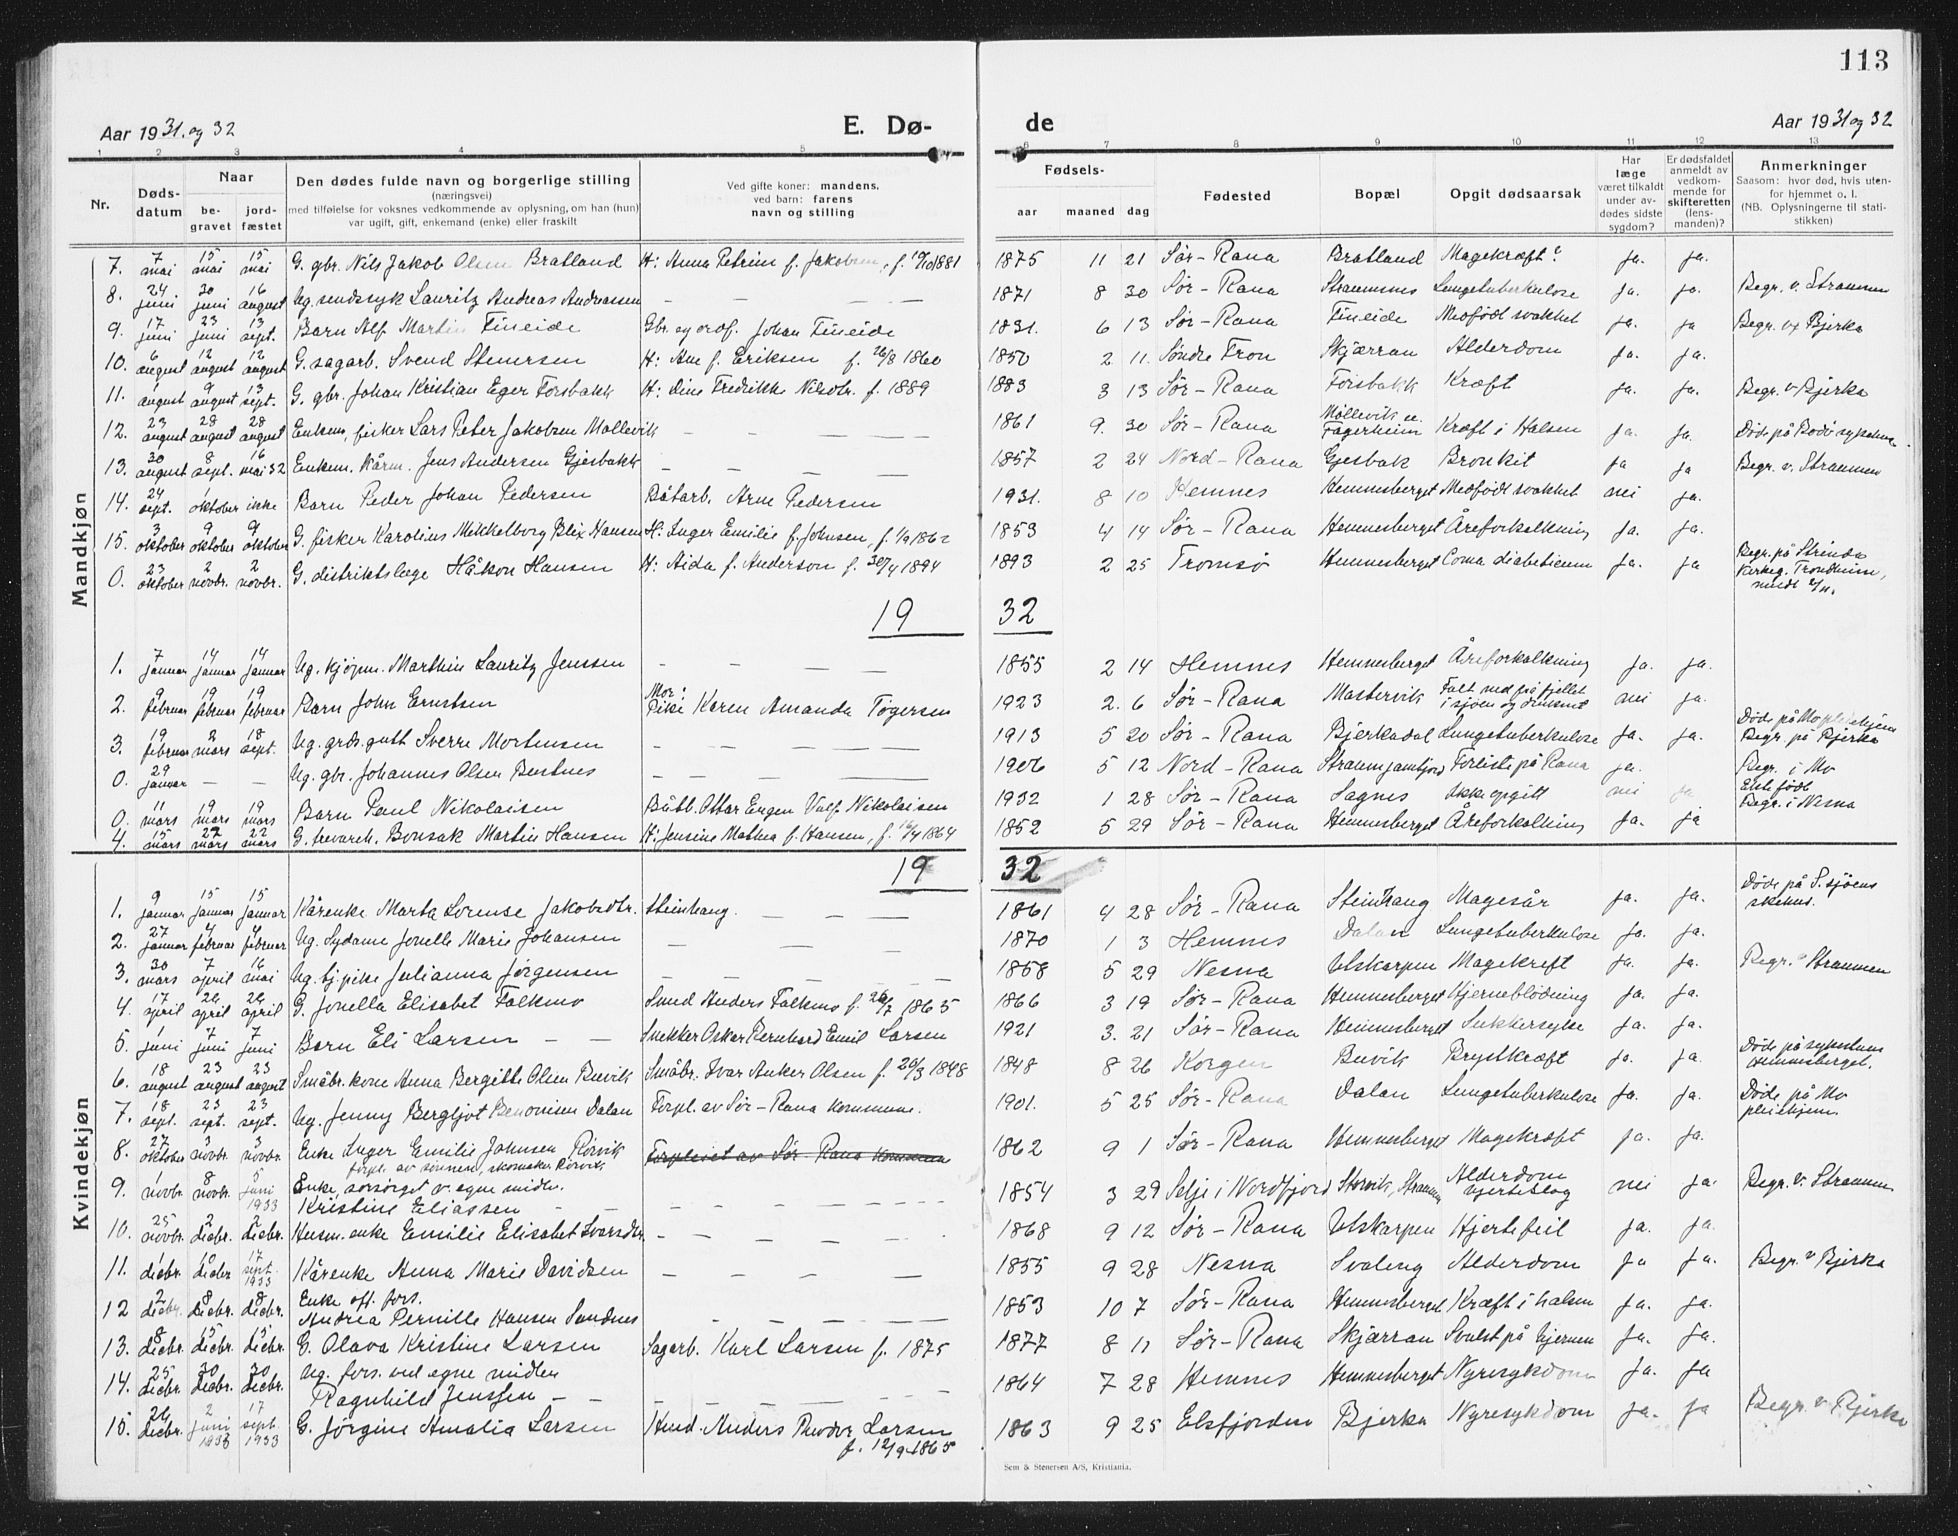 113
Aar 1931 og 32
E. Dø-
de
Aar 1931 og 32
1 2 3 4 5 6 7 8 9 10 11 12 13
Nr.
Døds-
datum
Naar
be-
gravet
jord-
fæstet
Den dødes fulde navn og borgerlige stilling
(næringsvei)
med tilføielse for voksnes vedkommende av oplysning, om han (hun)
var ugift, gift, enkemand (enke) eller fraskilt
Ved gifte koner: mandens,
ved barn: farens
navn og stilling
Fødsels-
aar maaned dag
Fødested
Bopæl
Opgit dødsaarsak
Har
læge
været tilkaldt
under av-
dødes sidste
sygdom?
Er dødsfaldet
anmeldt av
vedkom-
mende for
skifteretten
(lens-
manden)?
Anmerkninger
Saasom: hvor død, hvis uten-
for hjemmet o. l.
(NB. Oplysningerne til stati-
stikken)
Mandkjøn
7. 7 mai 15 mai 15 mai G. gbr. Nils Jakob Olsen Bratland H: Anna Petrine f. Jakobsen, f. 1881 1875 11 21 Sør-Rana Bratland Magekræft? ja. ja.
8. 24 juni 30 juni 16 august Ug. sindssyk Lauritz Andreas Andreassen — — — 1871 8 30 Sør-Rana Straumsnes Lungetuberkulose ja. ja. Begr. v. Straumen
9. 17 juni 23 juni 13 sept. Barn Alf Martin Fineide Gbr. og ordf. Johan Fineide 1831. 6 13 Sør-Rana Fineide Medfødt svakhet ja. ja Begr. v. Bjerka
10. 6 august 12 august 12 august G. sagarb. Svend Stenersen H: Ane f. Eriksen f. 26/8 1860 1850 2 11. Søndre Fron Skjærran Alderdom ja. ja.
11. 1 august 9 august 13 sept. G. gbr. Johan Kristian Eger Forsbakk H: Dine Fredrikke Nilsdtr. f. 1889 1883 3 13 Sør-Rana Forsbakk Kræft ja. ja. Begr. v. Bjerka
12. 23 august 28 august 28 august Enkem. fisker Lars Peter Jakobsen Mollevik — — — 1861 9. 30 Sør-Rana Møllevik Fagerheim Kræft i Halsen ja. ja. Døde på Bodø sykehus.
13. 30 august 8 sept. 16 mai 32 Enkem. kårm. Jens Andersen Gjesbakk — — — 1857 2 24 Nord-Rana Gjesbak Bronkit ja ja Begr. v. Straumen
14. 24 sept. 1 oktober ikke Barn Peder Johan Pedersen Båtarb. Arne Pedersen 1931. 8 10 Hemnes Hemnesberget Medfødt svakhet nei ja.
15. 3 oktober 9 oktober 9 oktober G. fisker Karolius Mekkelborg Blix Hansen H: Inger Emilie f. Johnsen, f. 1/9 1862 1853 4 14 Sør-Rana Hemnesberget Åreforkalkning ja. ja.
0. 23 oktober 2 novbr. 2 novbr. G. distriktslæge Håkon Hansen H: Aida f. Anderson f. 30/4 1894 1893 2 25 Tromsø Hemnesberget Coma diabeticum ja. ja Begr. på Strinda
kirkeg. Trondheim,
19 32
1. 7 januar 14 januar 14 januar Ug. kjøpm. Marthin Lauritz Jenssen — — — 1855 2 14 Hemnes Hemnesberget Åreforkalkning ja. ja.
2. 9 februar 19 februar 19 februar Barn John Ernstsen Mor: Pike Karen Amanda Tøgersen 1923 2. 6 Sør-Rana Mastervik Falt ned på fjellet
i sjøen og druknet nei ja.
3. 19 februar 2 mars 18 sept. Ug. grds.gutt Sverre Mortensen — — — 1913 5 20 Sør-Rana Bjerkadal Lungetuberkulose ja. ja. Døde på Mo pleiehjem
Begr. på Bjerka
0. 29 januar — — Ug. gbr. Johannes Olsen Bustnes — — — 1906 5 12 Nord-Rana Forliste på Rana ja. Begr. i Mo
0. 11 mars 19 mars 19 mars Barn Paul Nikolaisen Båtb. Ottar Eugen Nikolaisen 1932 1 28 Sør-Rana Sagnes Ikke opgitt nei ja Begr. i Nesna
4. 15 mars 22 mars 22 mars G. Bonsak Martin Hansen H: Jensine Mathea f. Hansen, f. 16/4 1864 1852 5 29 Sør-Rana Hemnesberget Åreforkalkning ja. ja
Kvindekjøn
19 32
1. 9 januar 15 januar 15 januar Kårenke Marta Lorense Jakobsdtr. Steinhaug. — — 1861 4 28 Sør-Rana Steinhaug Magesår ja. ja. Døde på S.sjøens
2. 27 januar 4 februar 4 februar Ug. Sydame Jonelle Marie Johansen — — — 1870 1 3 Hemnes Dalan Lungetuberkulose ja. ja.
3. 30 mars 7 april 16 mai Ug. tj.pike Julianna Jørgensen — — — 1858 5 29 Nesna Utskarpen Magekreft ja. ja. Begr. Straumen
4. 17 april 24 april 24 april G. Jonella Elisabet Falkmo Smed Anders Falkmo f. 26/7 1865 1866 3 19 Sør-Rana Hemnesberget Hjerneblødning ja. ja.
5. 1 juni 7 juni 7 juni Barn Eli Larsen — — Snekker Oskar Bernhard Emil Larsen 1921 3. 21 Sør-Rana Hemnesberget Sukkersyke ja. ja.
6. 18 august 23 august 23 august Småbr.kone Anna Bergitte Olsen Buvik Småbr. Ivar Anker Olsen f. 26/3 1848 1848 8 26 Korgen Buvik Brystkræft ja. ja. Døde på sykehus
Hemnesberget.
7. 18 sept. 23 sept. 23 sept. Ug. Jenny Bergljot Benonisen Dalan Forpl. av Sør-Rana kommune. 1901. 5 25 Sør-Rana Dalan Lungetuberkulose ja. ja. Døde på Mo
pleiehjem
8. 27 oktober 3 novbr. 3 novbr. Enke Inger Emilie Johnsen Rørvik
forpl. av sønnen, skomaker Rørvik Forpleiet av Sør-Rana Kommune 1862 9 1 Sør-Rana Hemnesberget Magekræft ja. ja.
9. 1 novbr. 8 novbr. 5 juni 1933 Enke, forsørget v. egne midler.
Kristine Eliassen — — 1854 3 29 Selje i Nordfjord Storvik, Straumen Alderdom
hjerteslag nei ja. Begr. v. Straumen
10. 25 novbr. 2 decbr. 2 decbr. Husm.enke Emilie Elisabet Ivarsdtr. — — — 1868 9 12 Sør-Rana Utskarpen Hjertefeil ja. ja.
11. 1 decbr. 10 decbr 17 sept. 1933 Kårenke Anna Marie Davidsen — — — 1855 9 28 Nesna Svaleng Alderdom ja ja. Begr. v Bjerka
12 2 decbr. 8 decbr. 8 decbr. Enke off. fors.
Andrea Pernille Hansen Sandnes — — — 1853 10 7 Sør-Rana Hemnesberget Kræft i halsen ja. ja.
13. 8 decbr. 15 decbr. 15 decbr. G. Olava Kristine Larsen Sagarb. Karl Larsen f. 1875 1877 8 11 Sør-Rana Skjærran Svulst på hjernen ja. ja.
14. 25 decbr. 30 decbr. 30 decbr. Ug. fors. ved egne midler
Ragnhild Jenssen — — 1864 7 28 Hemnes Hemnesberget Nyresykdom ja. ja
15. 26 decbr. 2 juni 17 sept. 1933 G. Jørgine Amalia Larsen Anders Theodor Larsen
f. 12/9 1865 1863 9 25 Elsfjorden Bjerka Nyresykdom ja. ja Begr. v Bjerka
Sem & Stenersen A/S, Kristiania.